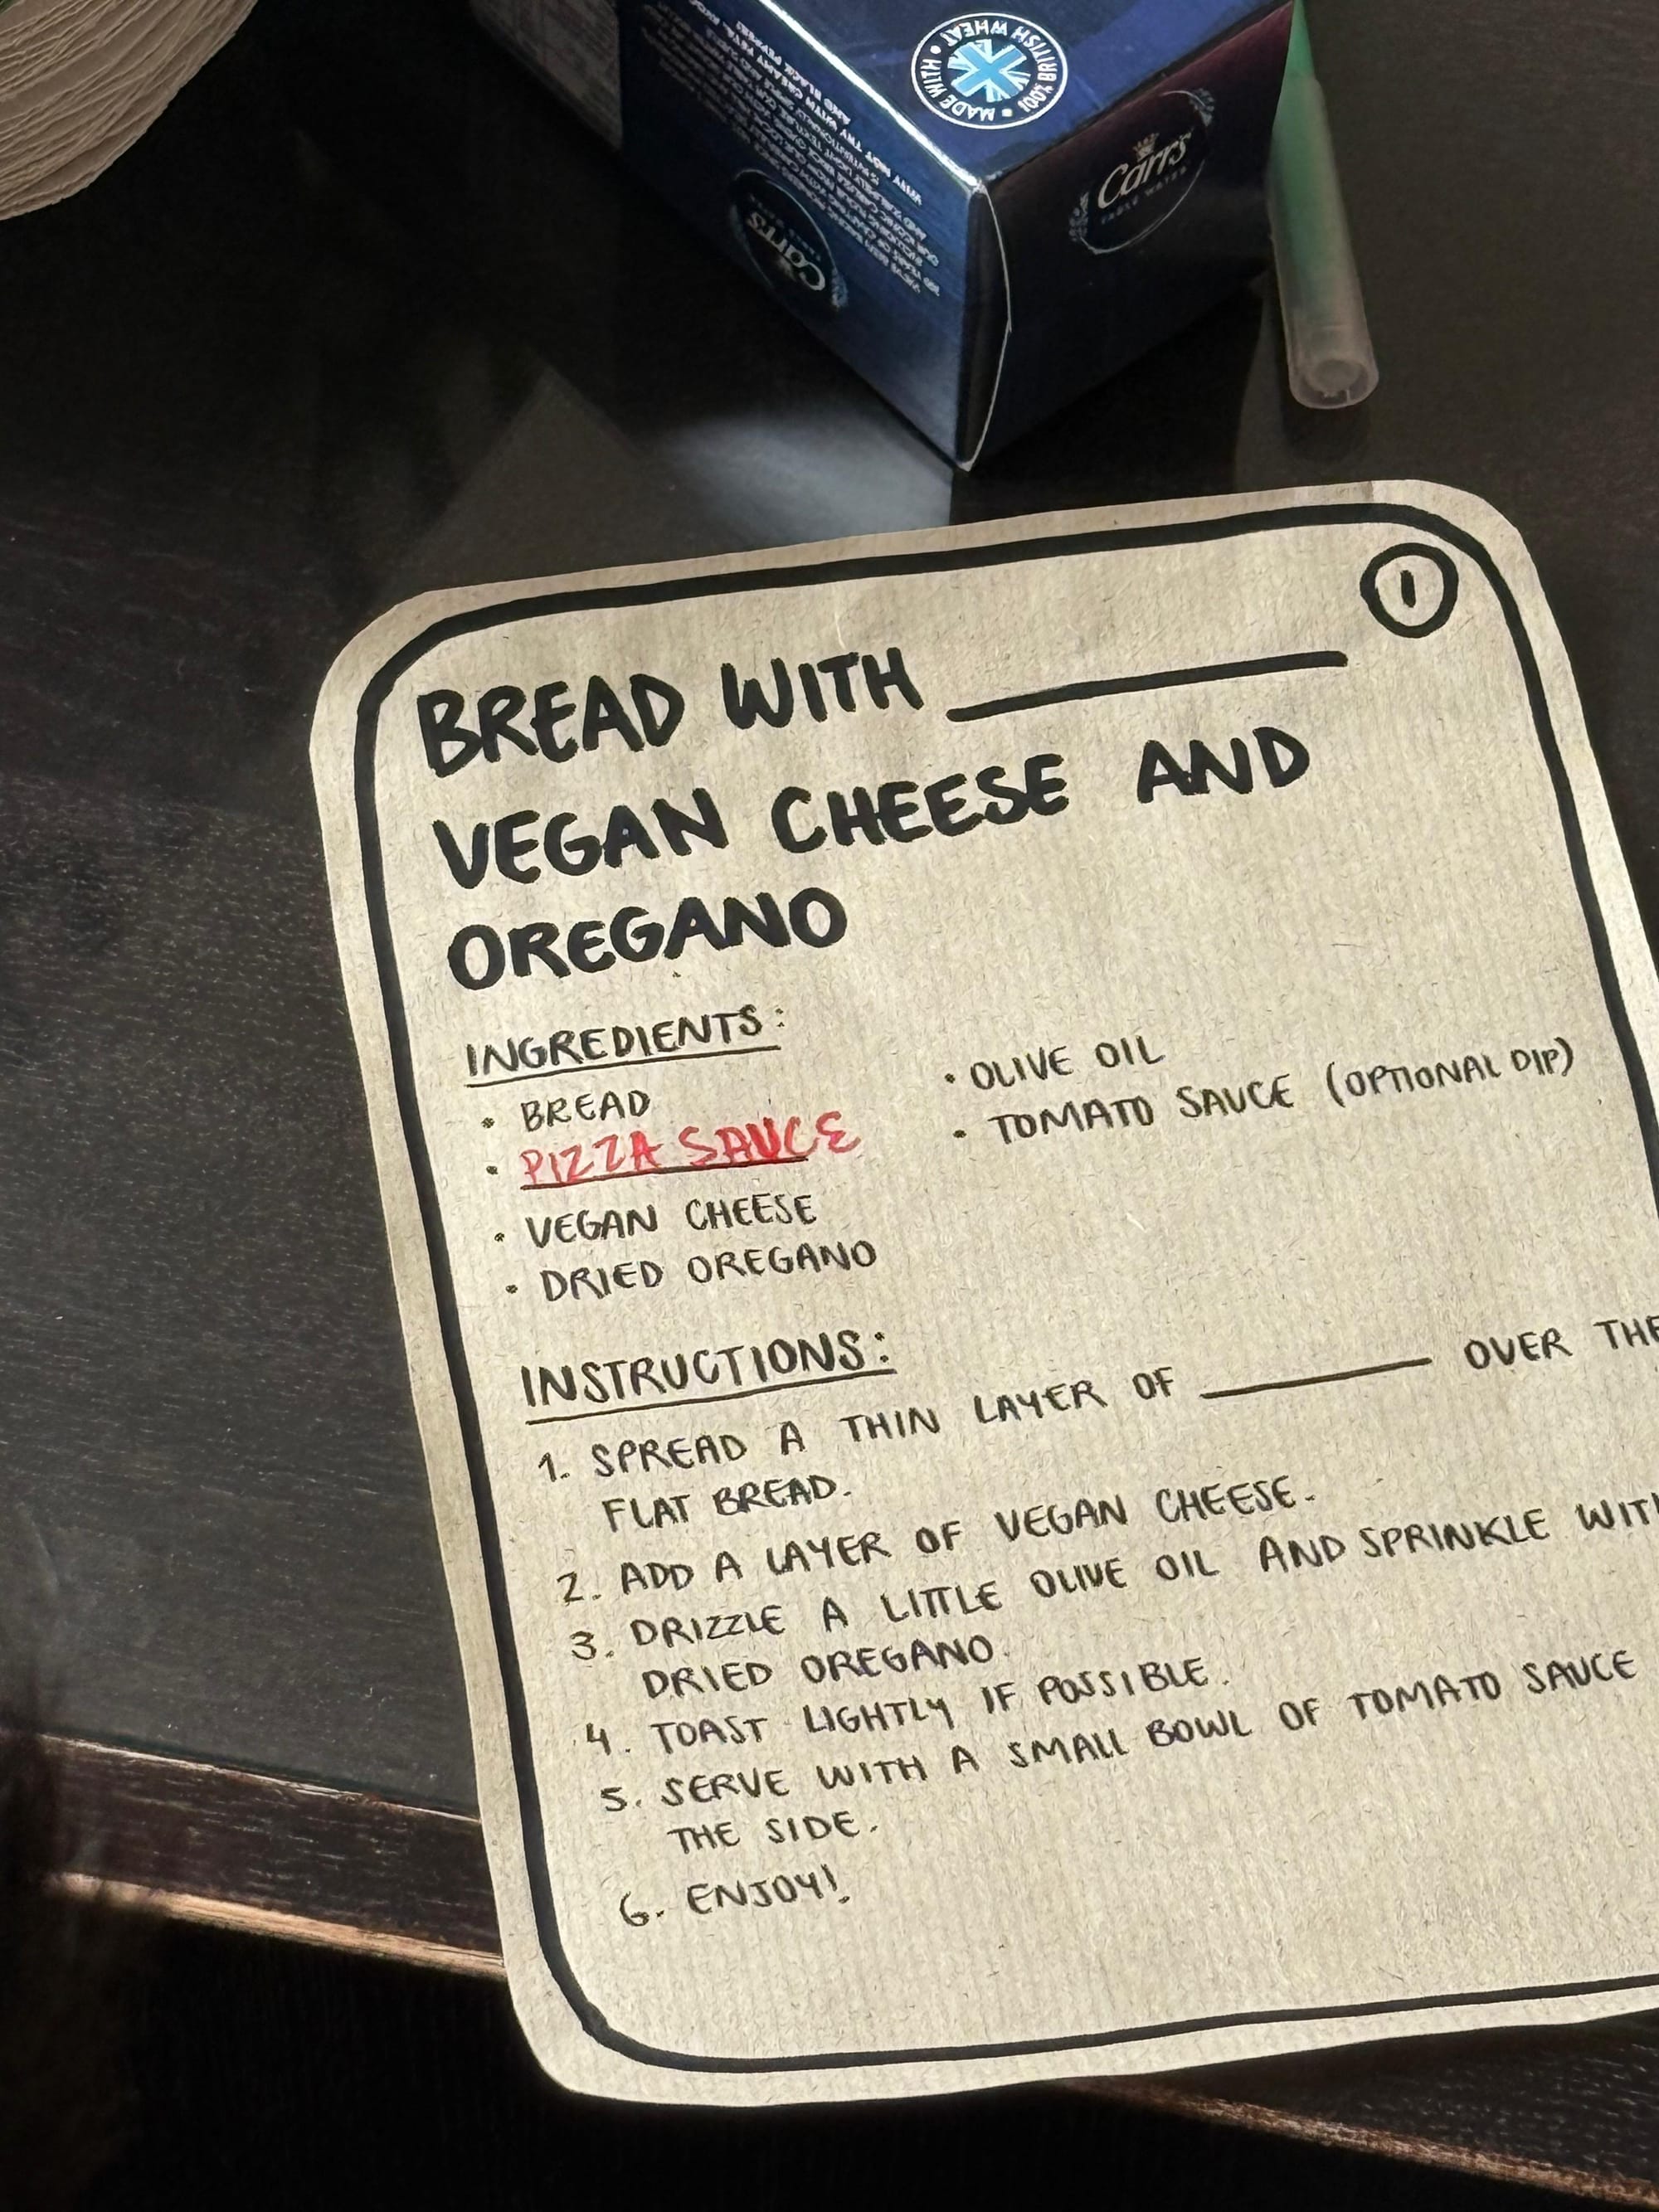 MADE WITH • 100% BRITISH WHEAT •
Carr's
TABLE WATER
Carr's
1
BREAD WITH ________
VEGAN CHEESE AND
OREGANO
INGREDIENTS:
• BREAD
• PIZZA SAUCE
• VEGAN CHEESE
• DRIED OREGANO
• OLIVE OIL
• TOMATO SAUCE (OPTIONAL DIP)
INSTRUCTIONS:
1. SPREAD A THIN LAYER OF ________ OVER THE
FLAT BREAD.
2. ADD A LAYER OF VEGAN CHEESE.
3. DRIZZLE A LITTLE OLIVE OIL AND SPRINKLE WITH
DRIED OREGANO.
4. TOAST LIGHTLY IF POSSIBLE.
5. SERVE WITH A SMALL BOWL OF TOMATO SAUCE
THE SIDE.
6. ENJOY!